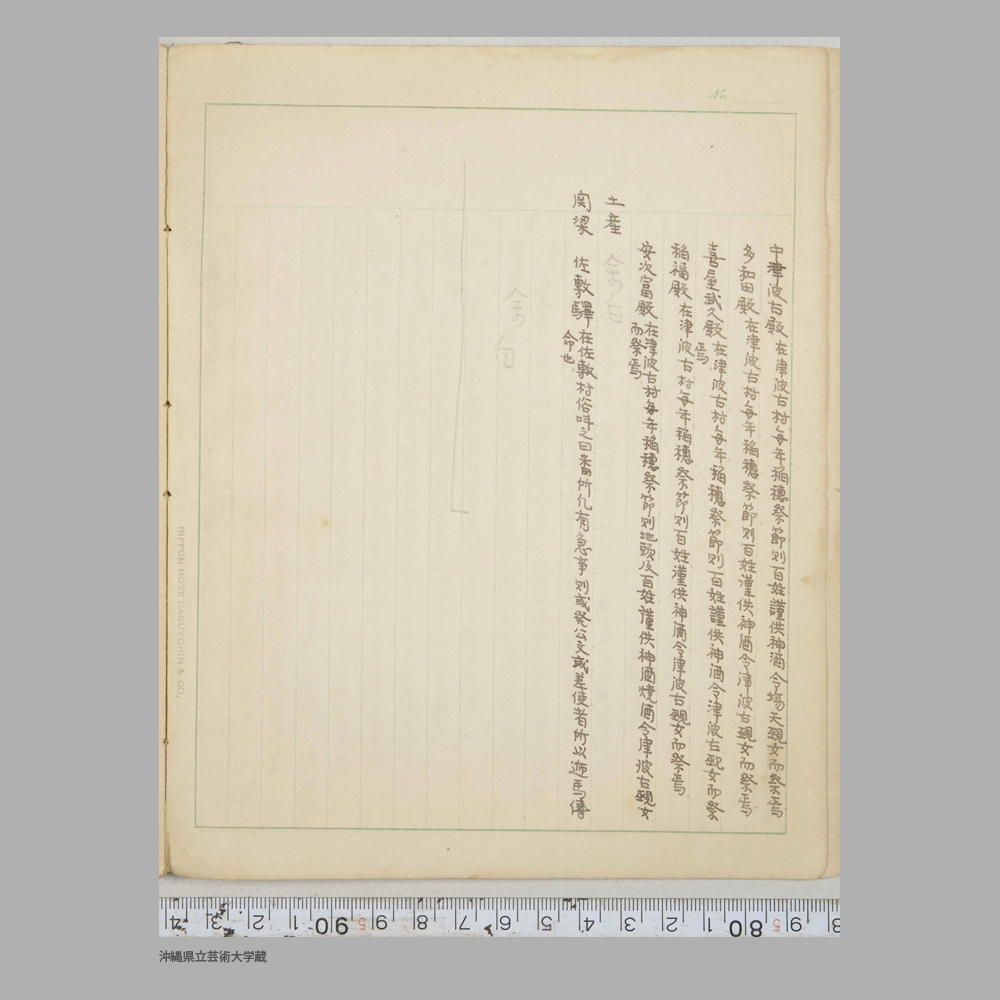 No.
中津波古殿 在津波古村毎年稲穂祭節則百姓謹供神酒令場天覡女而祭焉
多和田殿 在津波古村毎年稲穂祭節則百姓謹供神酒令津波古覡女而祭焉
喜屋武久殿 在津波古村毎年稲穂祭節則百姓謹供神酒令津波古覡女而祭
焉
稲福殿 在津波古村毎年稲穂祭節則百姓謹供神酒令津波古覡女而祭焉
安次富殿 在津波古村毎年稲穂祭節則地頭及百姓謹供神酒焼酒令津波古覡女
而祭焉
土産
余白
関梁
佐敷驛 在佐敷村俗呼之曰番所凡有急事則或発公文或差使者所以逓馬傳
命也
余白
NIPPON NOTE GAKUYOHIN & CO.
4 3 2 1 90 9 8 7 6 5 4 3 2 1 80 9 8
沖縄県立芸術大学蔵